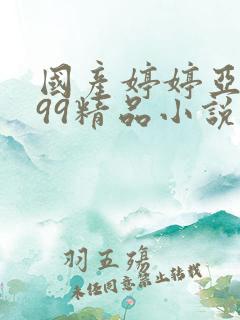 國產婷婷亞
99精品小說
羽五殤
未經同意禁止轉載